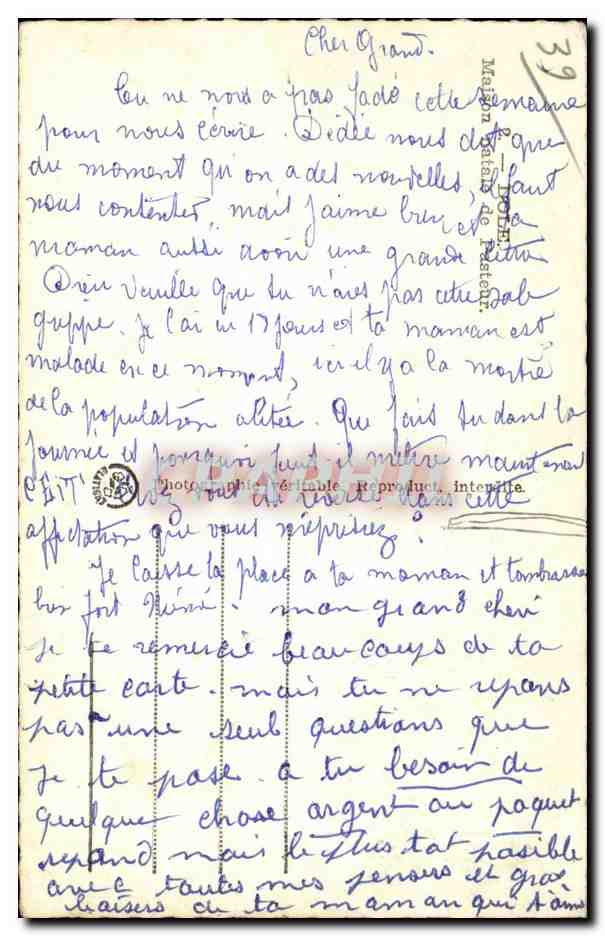 39
Cher Grand.
Tu ne nous a pas gadé cette semaine
pour nous écrire. Dédée nous dit que
du moment qu'on a des nouvelles, il faut
nous contenter, mais j'aime bien et ta
maman aussi avoir une grande lettre
Dieu veuille que tu n'aies pas cette sale
grippe. Je l'ai eu 17 jours et ta maman est
malade en ce moment, ici il y a la moitié
de la population alitée. Que fais tu dans la
journée et pourquoi faut il mettre maintenant
vous en révolté dans cette
affectation que vous méprisiez?
Je laisse la place a ta maman et t'embrasse
bien fort Néné. mon grand cheri
je te remercie beaucoups de ta
petite carte. mais tu ne repons
pas une seul questions que
je te pose. a tu besoin de
quelque chose argent ou paquet
repond mais le plus tot possible
avec toutes mes pensers et gros
baisers de ta maman qui t'aime
2. — DOLE.
Maison natale de Pasteur.
Photographie véritable. Reproduct. interdite.